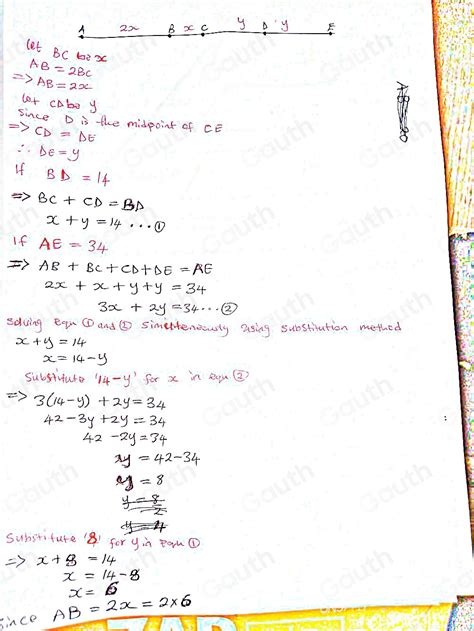 A 2x B x C y D y E
let BC be x
AB = 2BC
=> AB = 2x
let CD be y
Since D is the midpoint of CE
=> CD = DE
∴ DE = y
If BD = 14
=> BC + CD = BD
x + y = 14 ... ①
If AE = 34
=> AB + BC + CD + DE = AE
2x + x + y + y = 34
3x + 2y = 34 ... ②
Solving Eqn ① and ② simultaneously using substitution method
x + y = 14
x = 14 - y
Substitute '14 - y' for x in eqn ②
=> 3(14 - y) + 2y = 34
42 - 3y + 2y = 34
42 - 2y = 34
y = 42 - 34
y = 8
y = 8
2
y = 4
Substitute '8' for y in Eqn ①
=> x + 8 = 14
x = 14 - 8
x = 6
Since AB = 2x = 2 x 6
Gauth